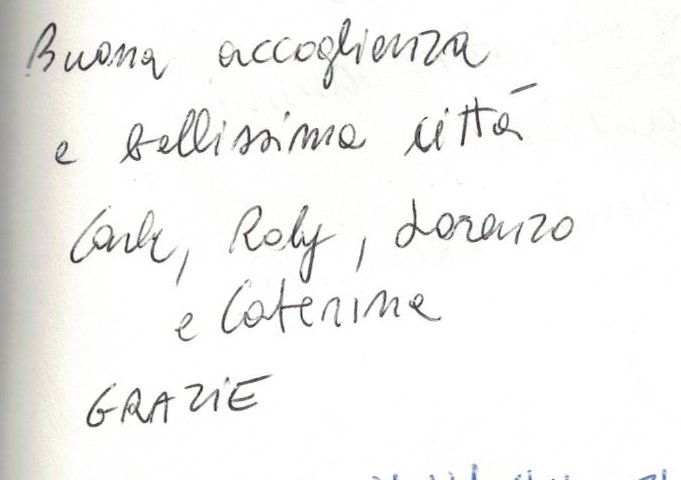 Buona accoglienza
e bellissima città
Carla, Roby, Lorenzo
e Caterina
GRAZIE